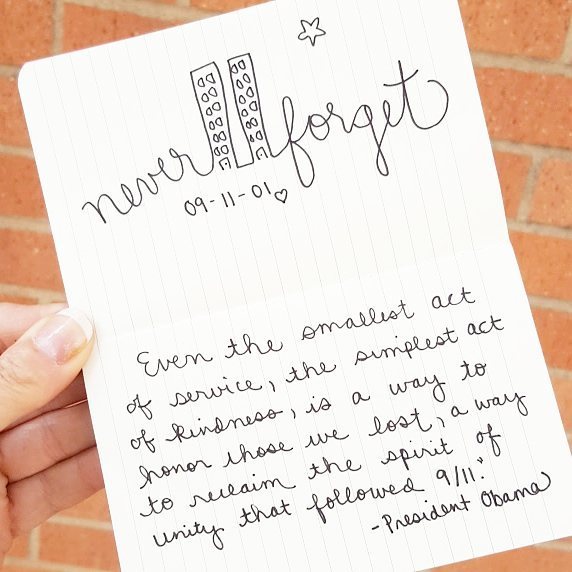 never forget
09-11-01
Even the smallest act
of service, the simplest act
of kindness, is a way to
honor those we lost, a way
to reclaim the spirit of
unity that followed 9/11."
-President Obama